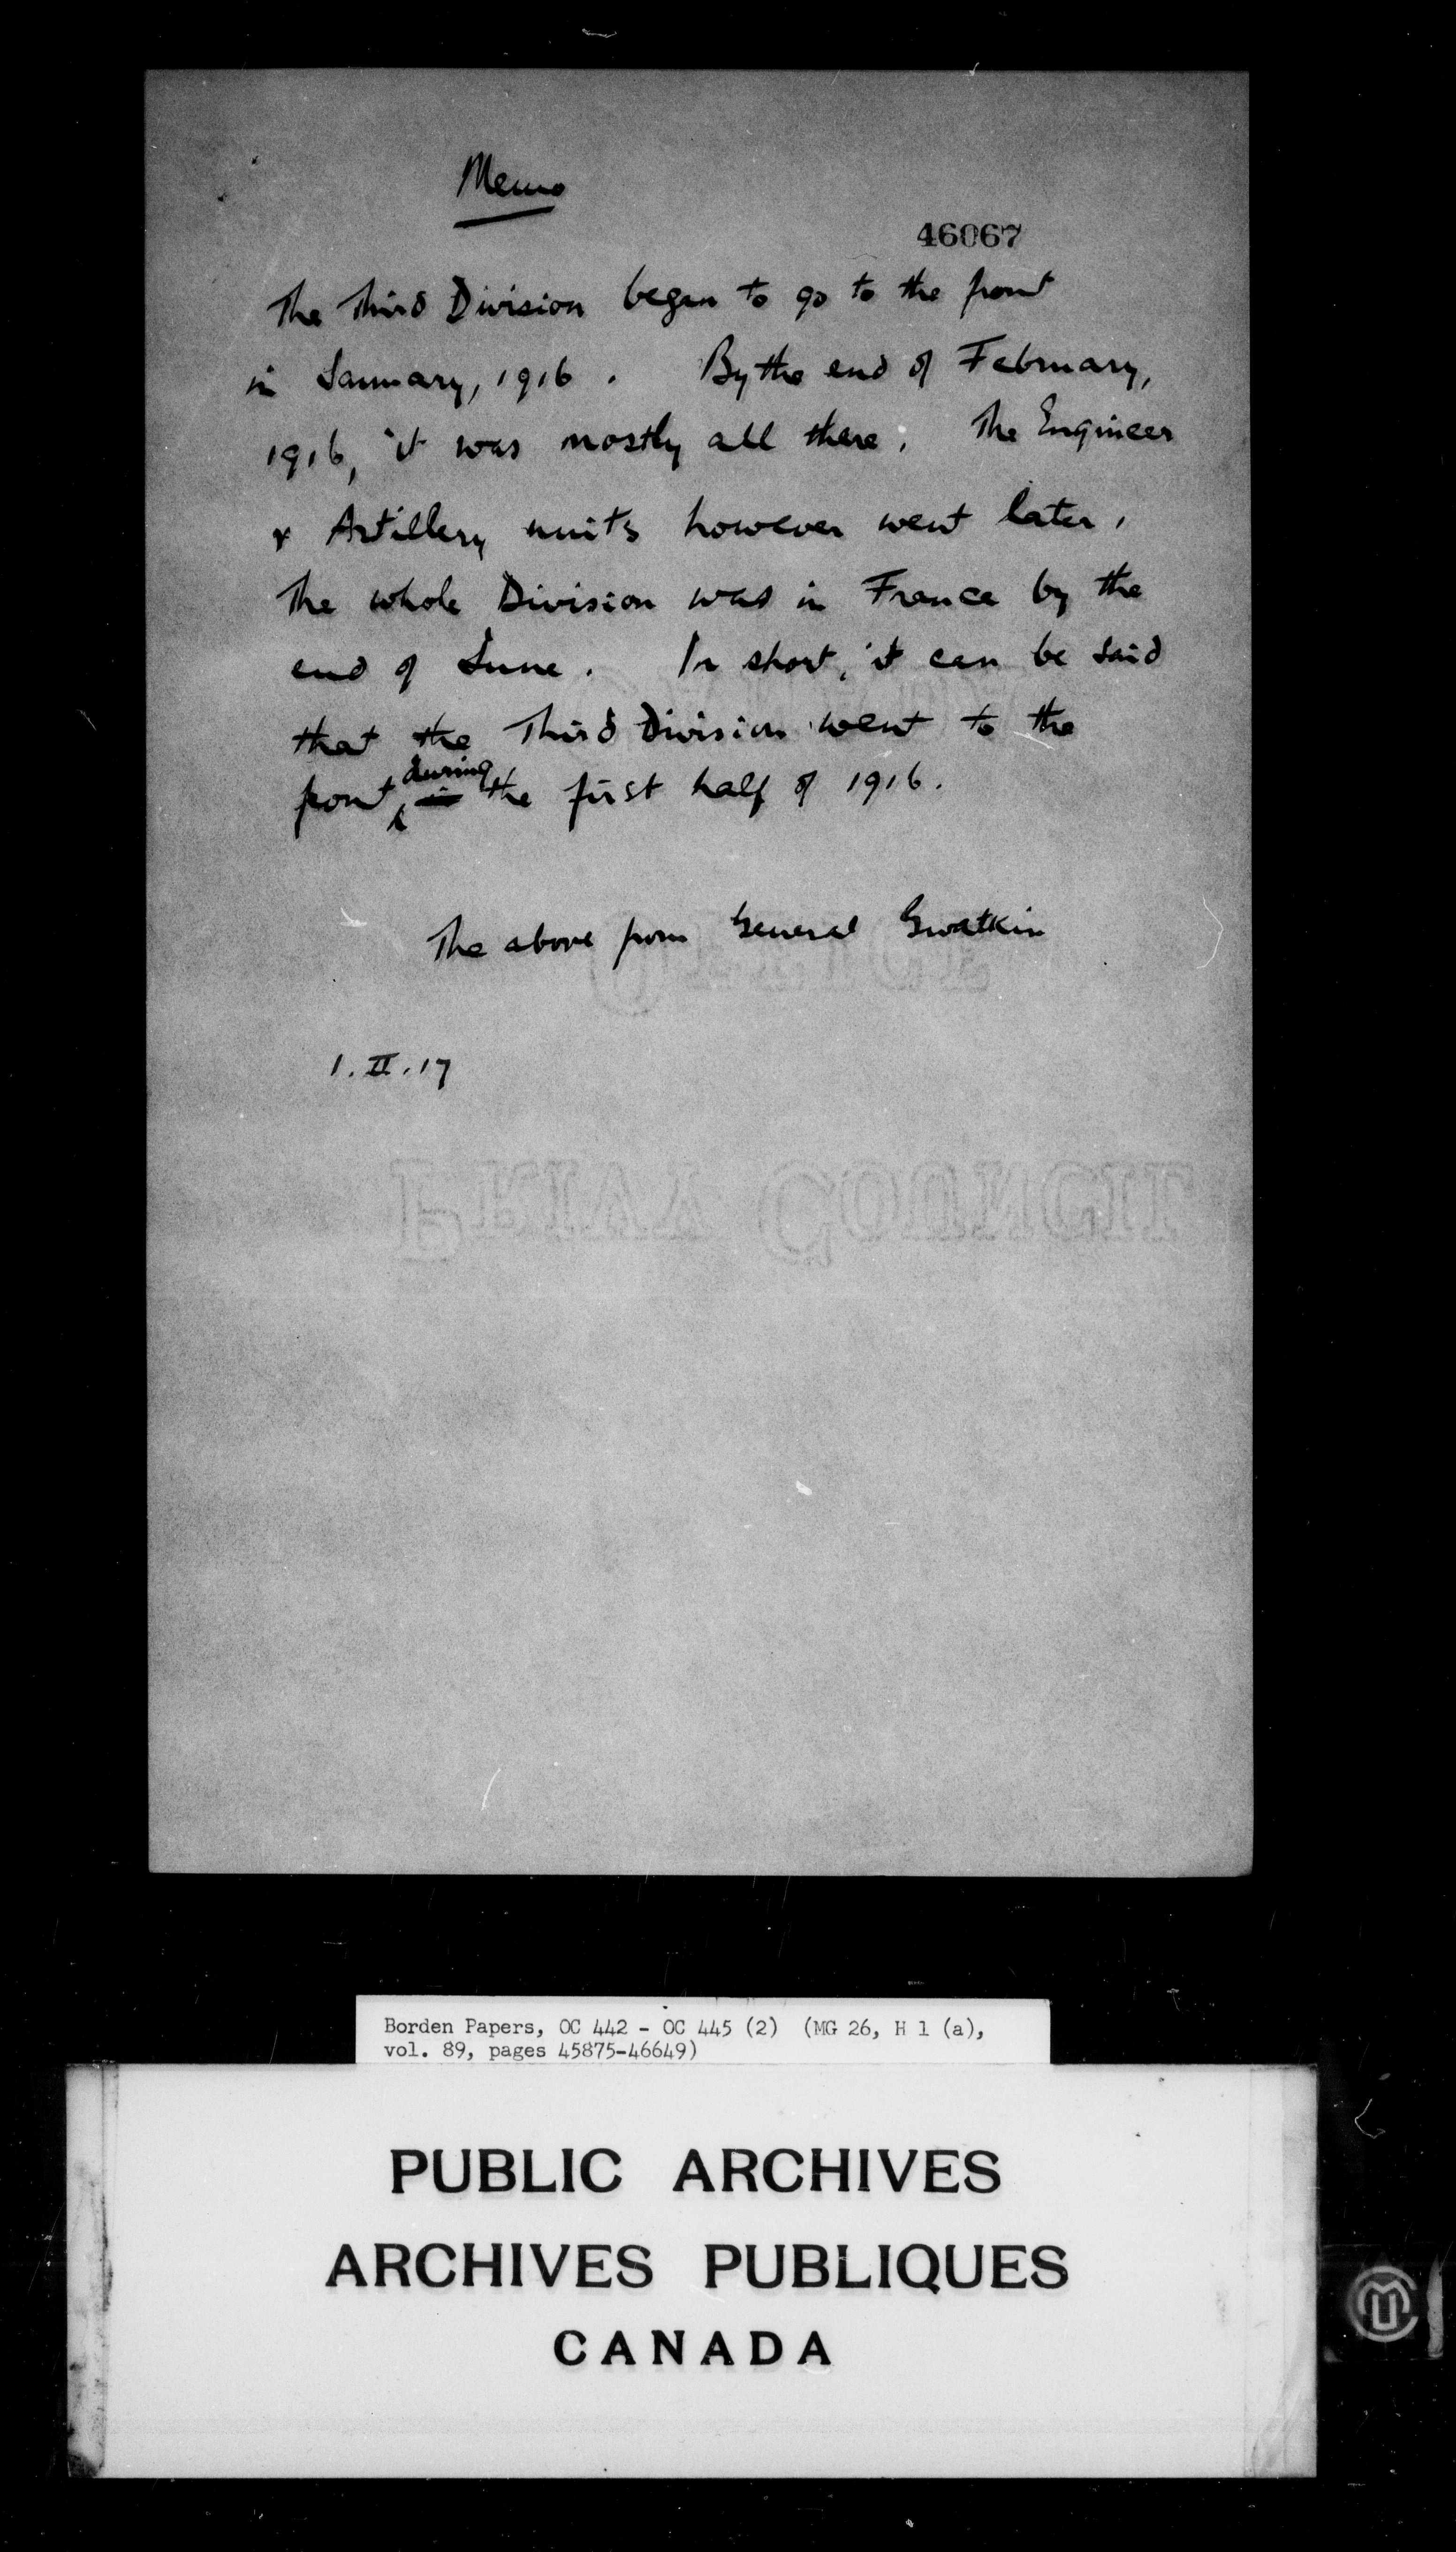 Memo
46067
The Third Division began to go to the front
in January, 1916. By the end of February,
1916, it was mostly all there. The Engineer
& Artillery units however went later.
The whole Division was in France by the
end of June. In short, it can be said
that the Third Division went to the
front during in the first half of 1916.
The above from General Gwatkin
OFFICE
1.II.17
PRIVY COUNCIL
Borden Papers, OC 442 - OC 445 (2) (MG 26, H 1 (a),
vol. 89, pages 45875-46649)
PUBLIC ARCHIVES
ARCHIVES PUBLIQUES
CANADA